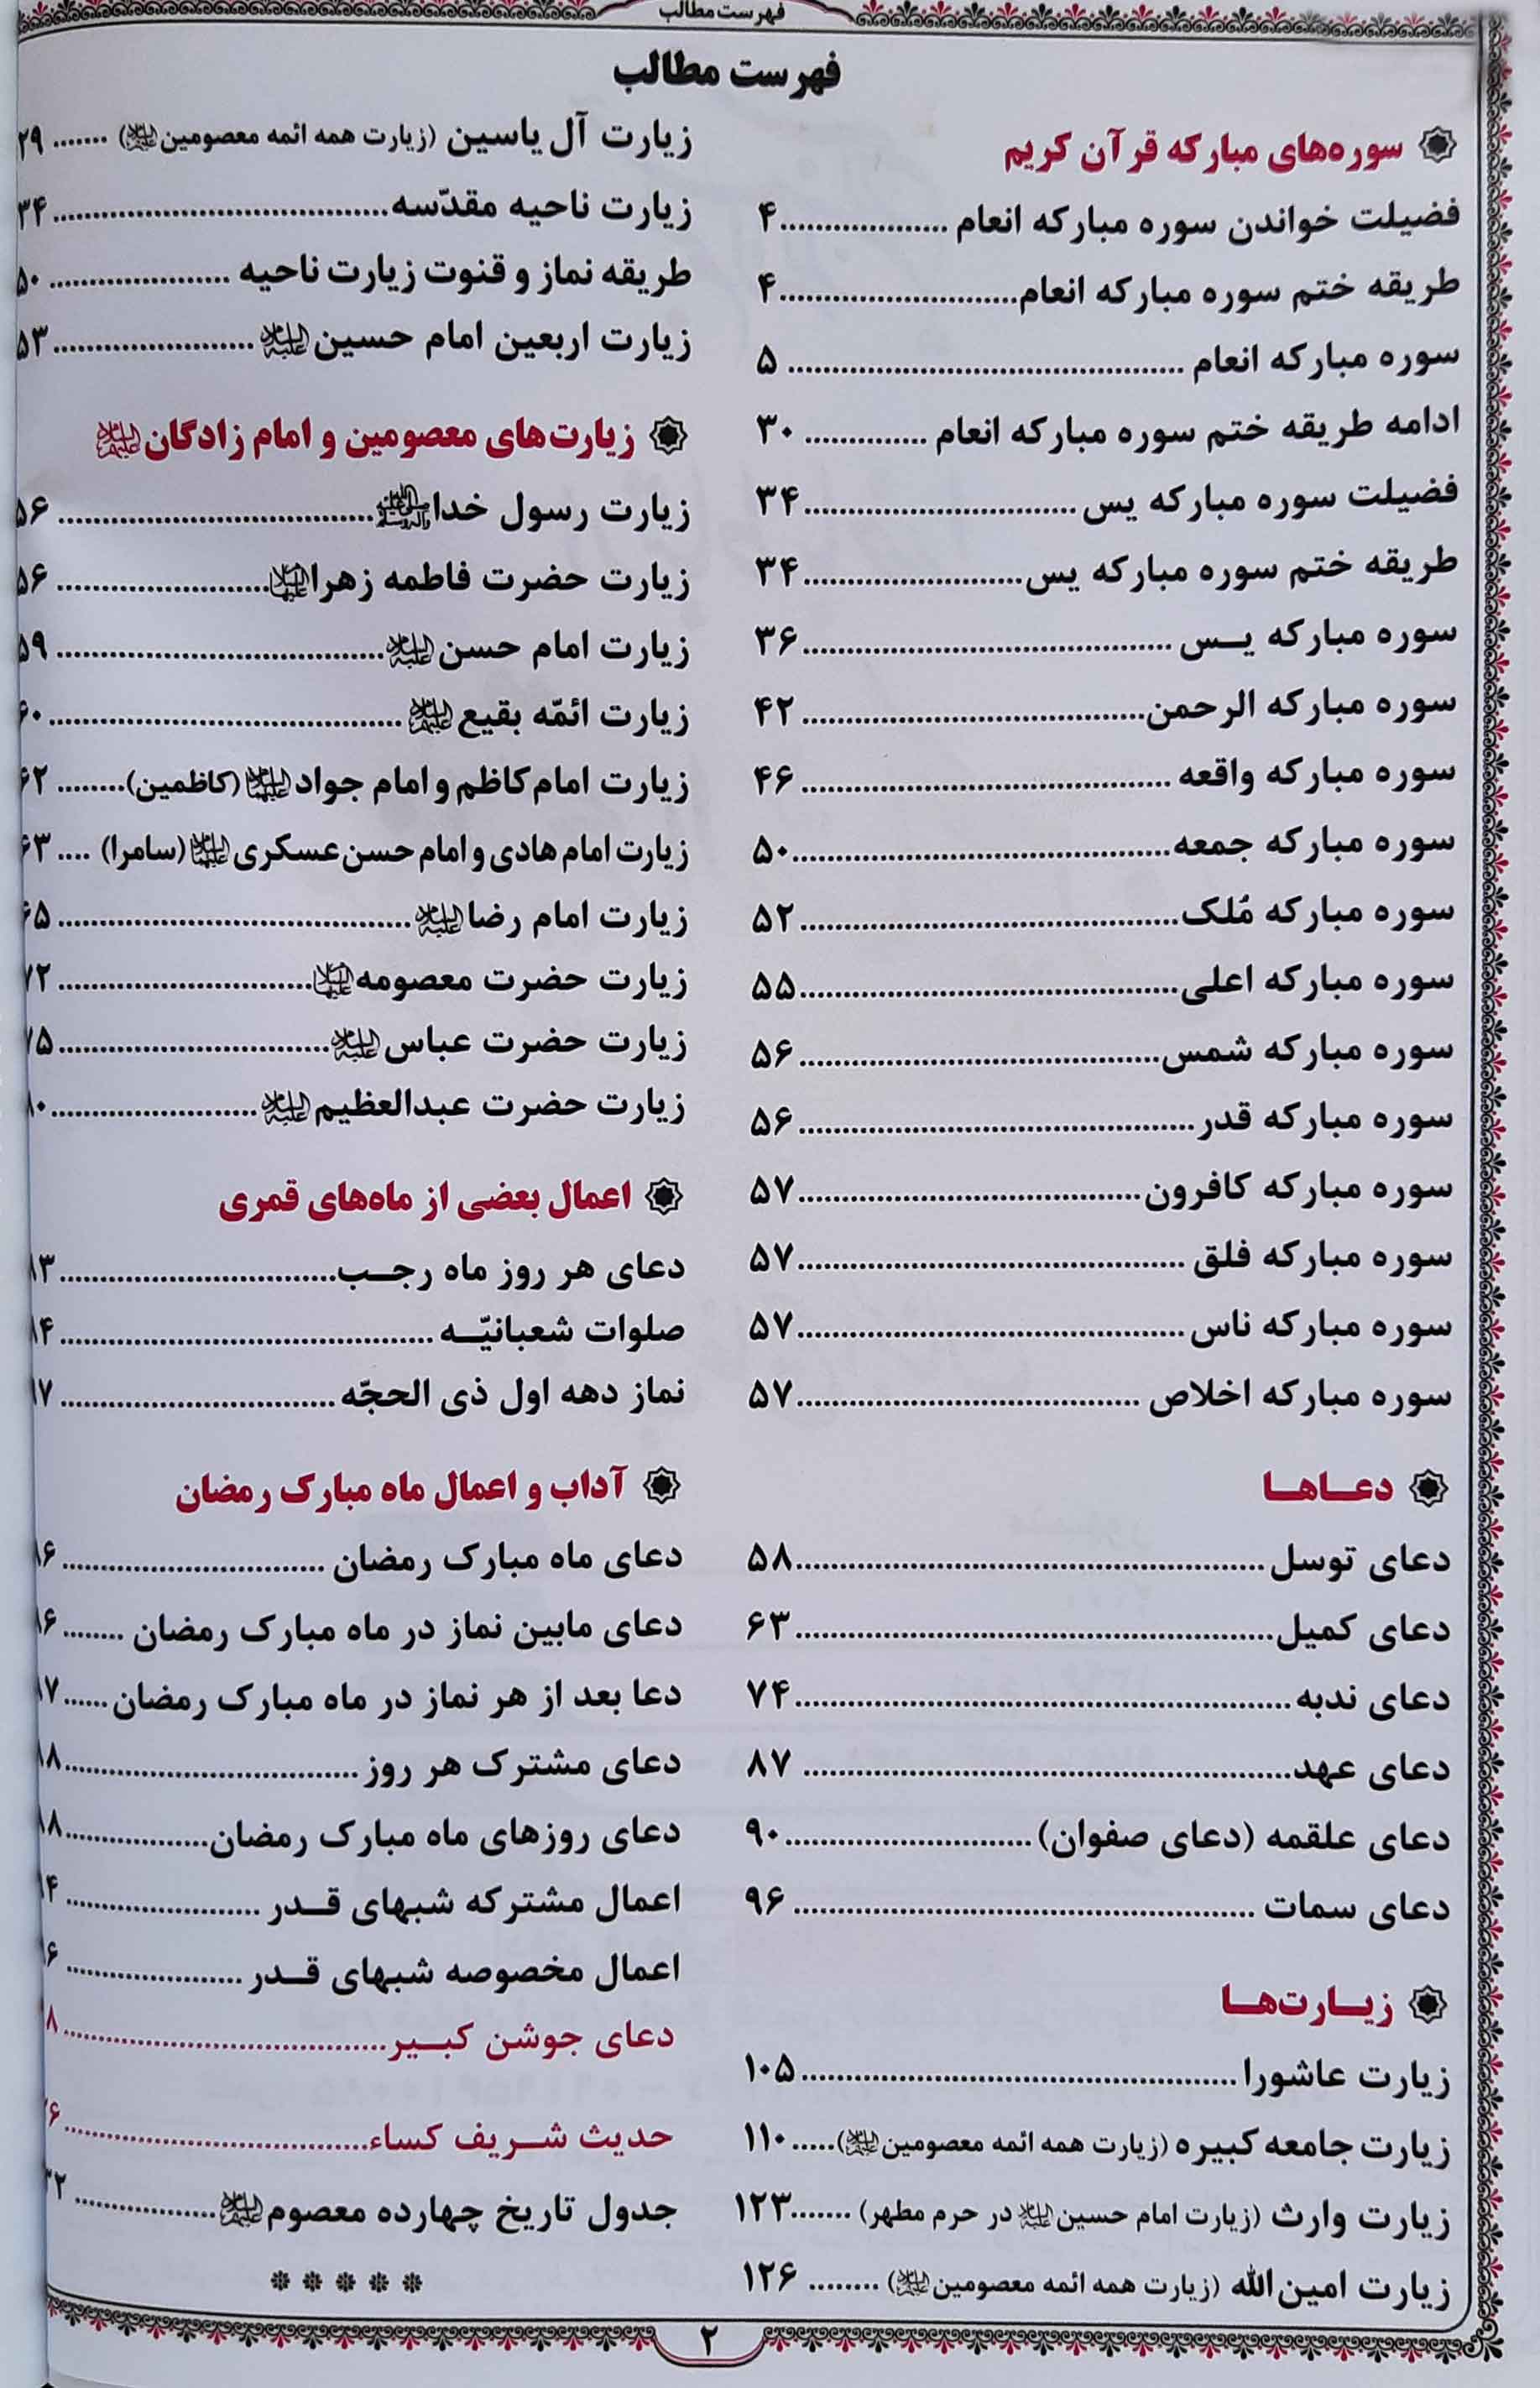 فهرست مطالب
فهرست مطالب
سوره‌های مبارکه قرآن کریم
فضیلت خواندن سوره مبارکه انعام ................... ۴
طریقه ختم سوره مبارکه انعام ........................... ۴
سوره مبارکه انعام ............................................. ۵
ادامه طریقه ختم سوره مبارکه انعام .............. ۳۰
فضیلت سوره مبارکه یس ............................... ۳۴
طریقه ختم سوره مبارکه یس ......................... ۳۴
سوره مبارکه یــس .......................................... ۳۶
سوره مبارکه الرحمن ....................................... ۴۲
سوره مبارکه واقعه .......................................... ۴۶
سوره مبارکه جمعه ........................................... ۵۰
سوره مبارکه مُلک ........................................... ۵۲
سوره مبارکه اعلی ........................................... ۵۵
سوره مبارکه شمس ......................................... ۵۶
سوره مبارکه قدر ............................................. ۵۶
سوره مبارکه کافرون ....................................... ۵۷
سوره مبارکه فلق ............................................ ۵۷
سوره مبارکه ناس ............................................ ۵۷
سوره مبارکه اخلاص ....................................... ۵۷
دعــاهــا
دعای توسل ...................................................... ۵۸
دعای کمیل ...................................................... ۶۳
دعای ندبه ........................................................ ۷۴
دعای عهد ........................................................ ۸۷
دعای علقمه (دعای صفوان) ............................ ۹۰
دعای سمات .................................................... ۹۶
زیــارت‌هــا
زیارت عاشورا ................................................. ۱۰۵
زیارت جامعه کبیره (زیارت همه ائمه معصومین علیهم السلام) ..... ۱۱۰
زیارت وارث (زیارت امام حسین علیه السلام در حرم مطهر) ....... ۱۲۳
زیارت امین‌الله (زیارت همه ائمه معصومین علیهم السلام) ........ ۱۲۶
زیارت آل یاسین (زیارت همه ائمه معصومین علیهم السلام) ....... ۲۹
زیارت ناحیه مقدّسه ...................................... ۳۴
طریقه نماز و قنوت زیارت ناحیه ..................... ۵۰
زیارت اربعین امام حسین علیه السلام ....................... ۵۳
زیارت‌های معصومین و امام زادگان علیهم السلام
زیارت رسول خدا صلی الله علیه وآله وسلم .................................... ۵۶
زیارت حضرت فاطمه زهرا علیها السلام ........................ ۵۶
زیارت امام حسن علیه السلام ..................................... ۵۹
زیارت ائمّه بقیع علیهم السلام ........................................ ۶۰
زیارت امام کاظم و امام جواد علیهما السلام (کاظمین) ........ ۶۲
زیارت امام هادی و امام حسن عسکری علیهما السلام (سامرا) .... ۶۳
زیارت امام رضا علیه السلام ........................................ ۶۵
زیارت حضرت معصومه علیها السلام ............................. ۷۲
زیارت حضرت عباس علیه السلام ............................... ۷۵
زیارت حضرت عبدالعظیم علیه السلام ....................... ۸۰
اعمال بعضی از ماه‌های قمری
دعای هر روز ماه رجــب ................................
صلوات شعبانیّــه ...........................................
نماز دهه اول ذی الحجّه ...............................
آداب و اعمال ماه مبارک رمضان
دعای ماه مبارک رمضان ..............................
دعای مابین نماز در ماه مبارک رمضان ........
دعا بعد از هر نماز در ماه مبارک رمضان ......
دعای مشترک هر روز ..................................
دعای روزهای ماه مبارک رمضان ................
اعمال مشترکه شبهای قــدر ......................
اعمال مخصوصه شبهای قــدر ....................
دعای جوشن کبــیر .....................................
حدیث شــریف کساء ...................................
جدول تاریخ چهارده معصوم علیهم السلام ................ ۳۲
❊ ❊ ❊ ❊ ❊
۲